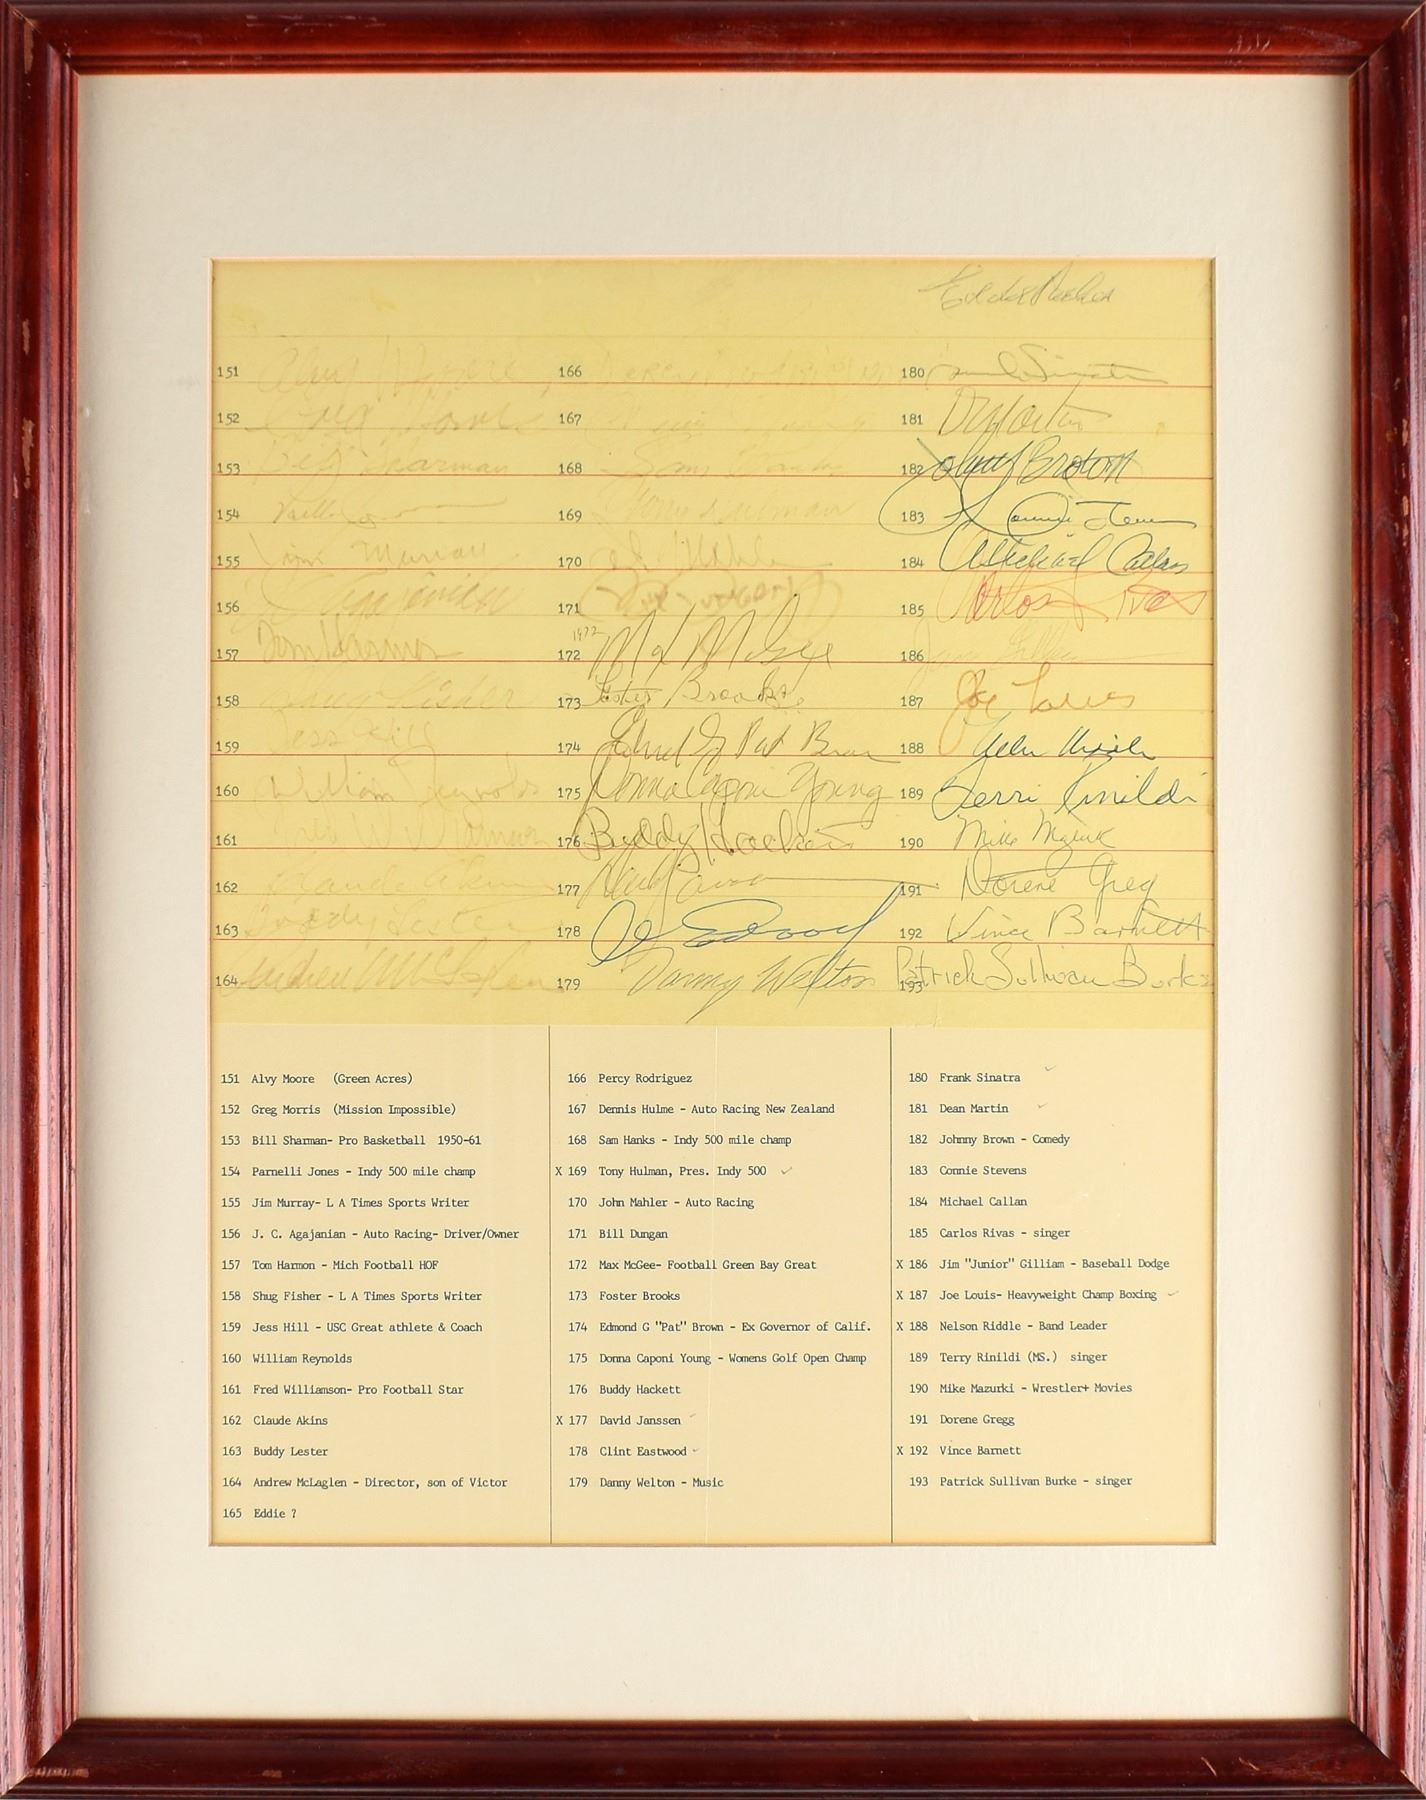 151 166 180
152 167 181 D Martin
153 168 Sam 182 Johnny Brown
154 169 183 Connie
155 Jim Murray 170 184 Michael Callan
156 171 185 Carlos Rivas
157 Tom Harmon 1972 172 Max McGee 186
158 173 Foster Brooks 187 Joe Louis
159 Jess Hill 174 Edmund G Pat Brown 188
160 William Reynolds 175 Donna Caponi Young 189 Terri Rinildi
161 176 Buddy Hackett 190 Mike
162 Claude Akins 177 191 Dorene Greg
163 Buddy Lester 178 192 Vince Barnett
164 Andrew McLaglen 179 Danny Welton 193 Patrick Sullivan Burke
151 Alvy Moore (Green Acres)
152 Greg Morris (Mission Impossible)
153 Bill Sharman- Pro Basketball 1950-61
154 Parnelli Jones - Indy 500 mile champ
155 Jim Murray- L A Times Sports Writer
156 J. C. Agajanian - Auto Racing- Driver/Owner
157 Tom Harmon - Mich Football HOF
158 Shug Fisher - L A Times Sports Writer
159 Jess Hill - USC Great athlete & Coach
160 William Reynolds
161 Fred Williamson- Pro Football Star
162 Claude Akins
163 Buddy Lester
164 Andrew McLaglen - Director, son of Victor
165 Eddie ?
166 Percy Rodriguez
167 Dennis Hulme - Auto Racing New Zealand
168 Sam Hanks - Indy 500 mile champ
X 169 Tony Hulman, Pres. Indy 500 ✓
170 John Mahler - Auto Racing
171 Bill Dungan
172 Max McGee- Football Green Bay Great
173 Foster Brooks
174 Edmond G "Pat" Brown - Ex Governor of Calif.
175 Donna Caponi Young - Womens Golf Open Champ
176 Buddy Hackett
X 177 David Janssen ✓
178 Clint Eastwood ✓
179 Danny Welton - Music
180 Frank Sinatra ✓
181 Dean Martin ✓
182 Johnny Brown - Comedy
183 Connie Stevens
184 Michael Callan
185 Carlos Rivas - singer
X 186 Jim "Junior" Gilliam - Baseball Dodge
X 187 Joe Louis- Heavyweight Champ Boxing ✓
X 188 Nelson Riddle - Band Leader
189 Terry Rinildi (MS.) singer
190 Mike Mazurki - Wrestler+ Movies
191 Dorene Gregg
X 192 Vince Barnett
193 Patrick Sullivan Burke - singer